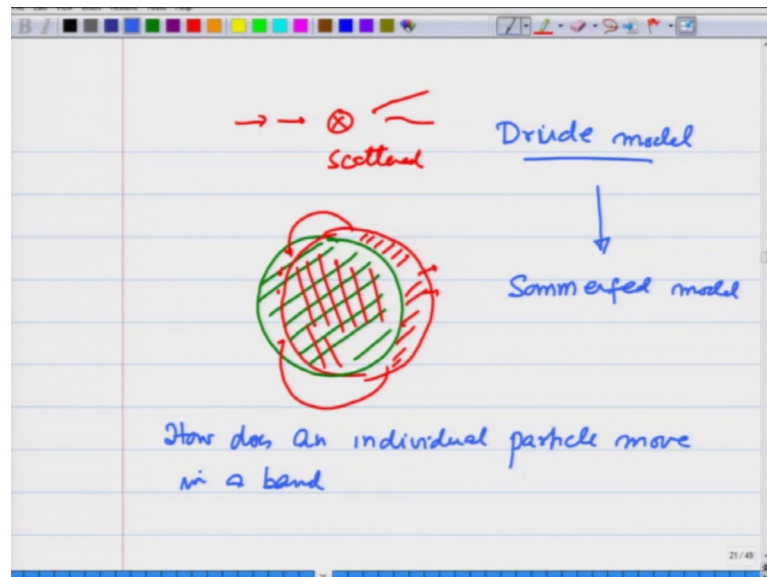 scattered
Drude model
Sommerfed model
How does an individual particle move
in a band
21/49